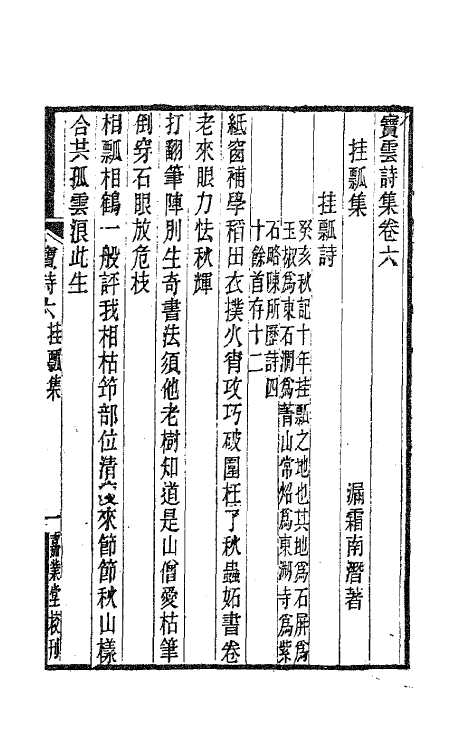 寶雲詩集卷六
掛瓢集　漏霜南潛著
挂瓢詩
癸亥秋記十年挂瓢之地也其地爲石屏爲
玉椒爲東石澗爲菁山常炤爲東湖寺爲紫
石略陳所歷詩四
十餘首存十二
紙窗補學稻田衣撲火宵攻巧破圍枉了秋蟲妬書卷
老來眼力怯秋輝
打翻筆陣別生奇書法須他老樹知道是山僧愛枯筆
倒穿石眼放危枝
相瓢相鶴一般評我相枯笻部位清 來節節秋山樣
合共孤雲浪此生
寶詩六 挂瓢集
一 嘉業堂校刊